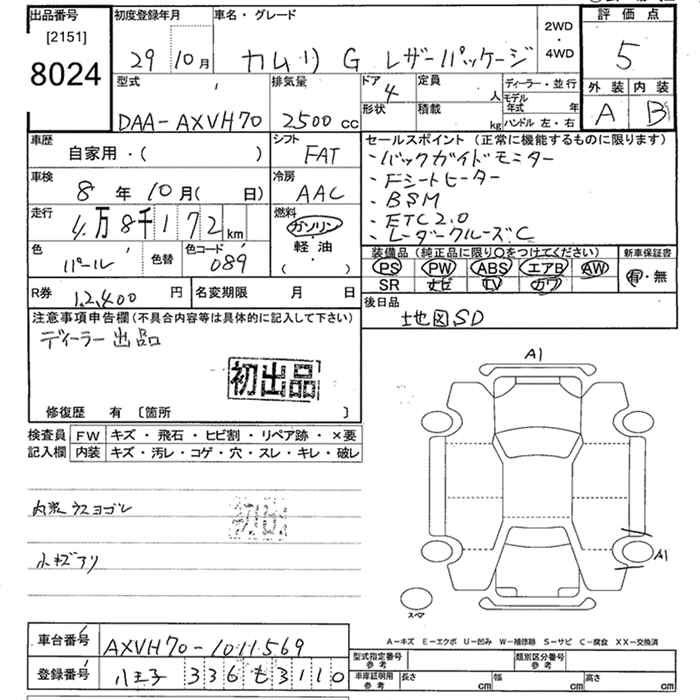 出品番号 初度登録年月 車名・グレード 2WD・4WD 評価点
[2151]
8024
29 10月 カムリ G レザーパッケージ 5
型式 排気量 ドア 定員 人 ディーラー・並行 外装 内装
DAA-AXVH70 2500cc 4 形状 積載 kg モデル年式 年 ハンドル 左・右 A B
車歴 シフト セールスポイント (正常に機能するものに限ります)
自家用・( ) FAT
・バックガイドモニター
・Fシートヒーター
・BSM
・ETC2.0
・レーダークルーズC
車検 冷房
8年10月( 日) AAC
走行 燃料
4万8千172km ガソリン・軽油・( )
色 色替 色コード
パール 089
装備品 (純正品に限り○をつけてください) 新車保証書
PS PW ABS エアB AW 有・無
SR ナビ TV カワ
R券 12,400円 名変期限 月 日
後日品
地図SD
注意事項申告欄 (不具合内容等は具体的に記入して下さい)
ディーラー出品
初出品
修復歴 有 〔箇所 〕
検査員 FW キズ・飛石・ヒビ割・リペア跡・×要
記入欄 内装 キズ・汚レ・コゲ・穴・スレ・キレ・破レ
A1
内装ウスヨゴレ
初出
小キズアリ
A1
スペア
A-キズ E-エクボ U-凹み W-補修跡 S-サビ C-腐食 XX-交換済
車台番号 AXVH70-1011569
登録番号 八王子 336 も 3110
型式指定番号 参考 類別区分番号 参考
車庫証明用 参考 長さ cm 幅 cm 高さ cm